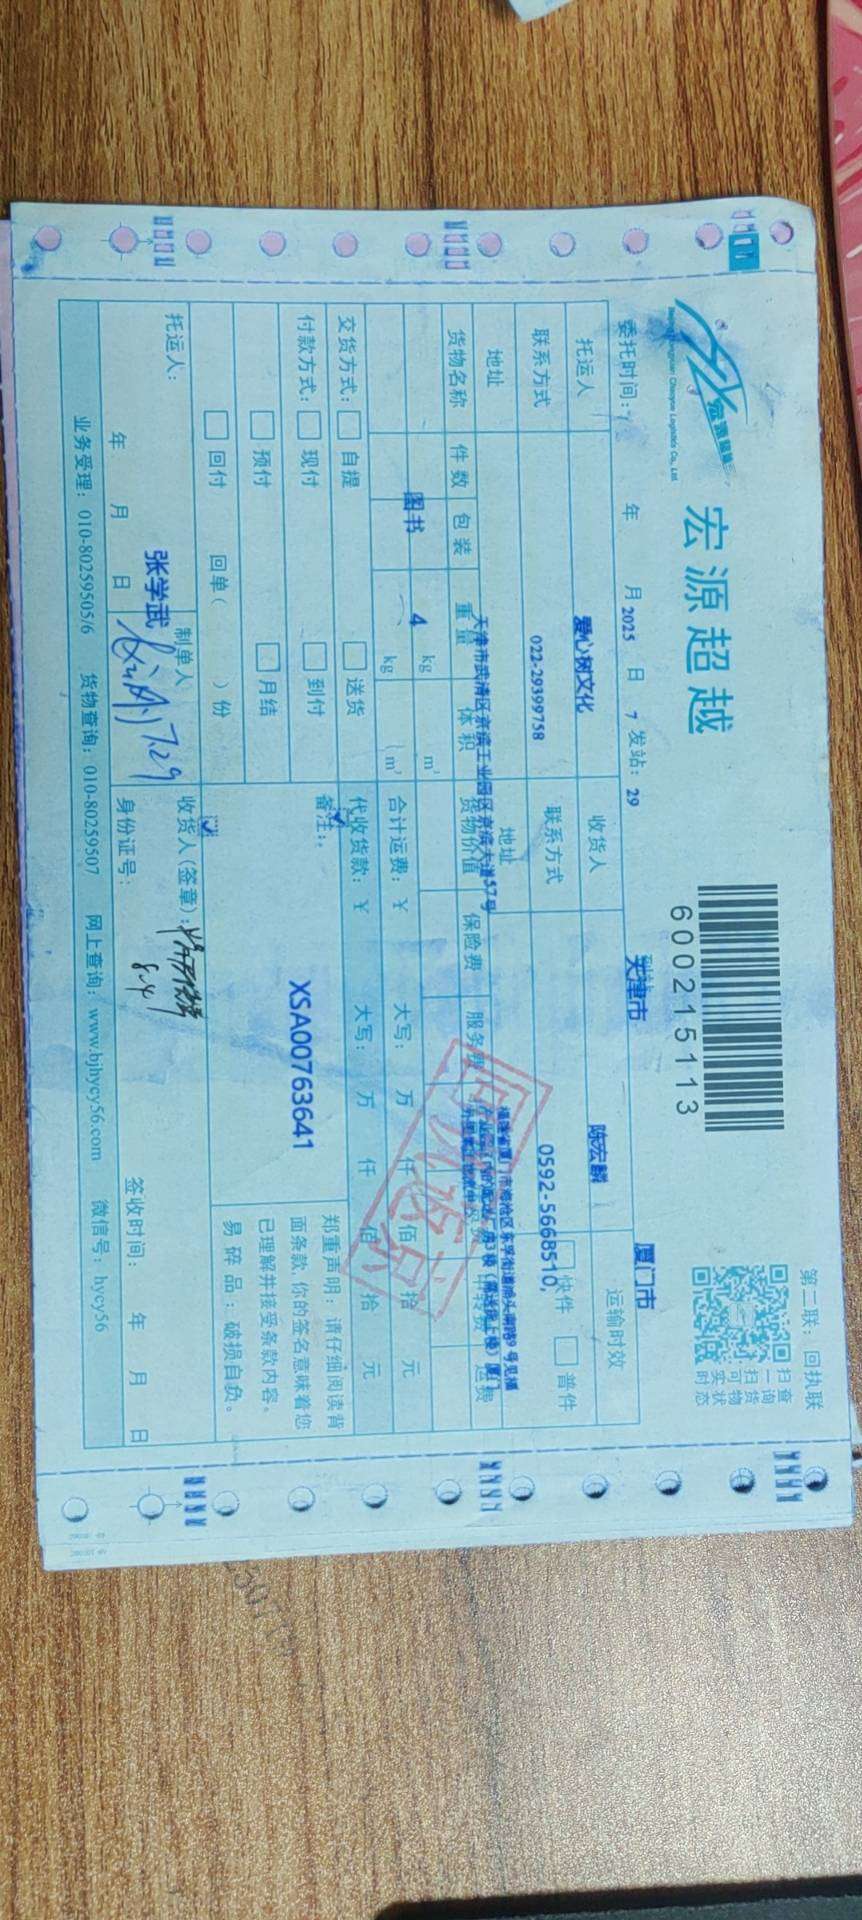 宏源超越
Beijing Hongyuan Chaoyue Logistics Co., Ltd.
宏源超越
600215113
第二联：回执联
扫一扫可实时
查询货物状态
委托时间： 年 月 2025 日 7 发站：29 天津市 厦门市
托运人 爱心树文化 收货人 陈宏麟 运输时效
联系方式 022-29399758 联系方式 0592-5668510, 快件 普件
地址 天津市武清区京滨工业园区京滨大道57号 地址
货物名称 件数 包装 重量 体积 货物价值 保险费 服务费 中转费 运费
图书 4 kg m³
kg m³
交货方式： 自提 送货 合计运费：¥ 大写： 万 仟 佰 拾 元
付款方式： 现付 到付 代收货款：¥ 大写： 万 仟 佰 拾 元
预付 月结 备注：
XSA00763641
回付 回单（ ）份
郑重声明：请仔细阅读背
面条款，你的签名意味着您
已理解并接受条款内容。
易碎品：破损自负。
托运人： 张学武 制单人 收货人(签章)：
7.29
年 月 日 身份证号： 8.4 签收时间： 年 月 日
业务受理：010-80259505/6 货物查询：010-80259507 网上查询：www.bjhycy56.com 微信号：hycy56